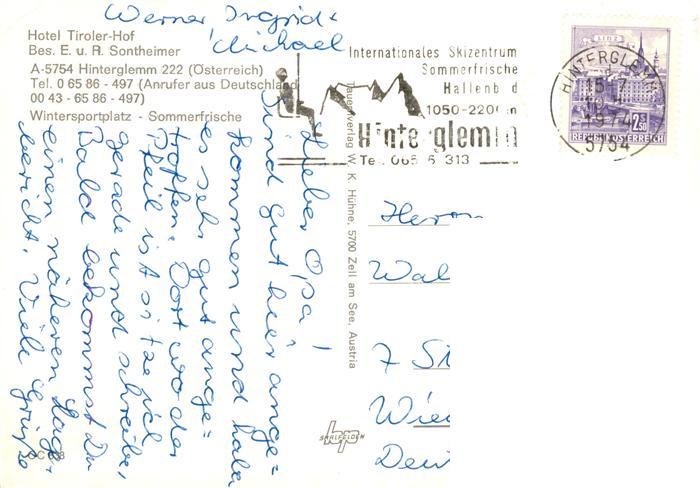 Werner, Ingrid +
Michael
Hotel Tiroler-Hof
Bes. E. u. R. Sontheimer
A-5754 Hinterglemm 222 (Österreich)
Tel. 0 65 86 - 497 (Anrufer aus Deutschland
00 43 - 65 86 - 497)
Wintersportplatz - Sommerfrische
Lieber Opa!
Sind gut hier ange=
kommen und habe
es sehr gut ange=
troffen. Dort wo der
Pfeil ist sitze ich
gerade und schreibe,
Bald bekommst Du
einen näheren Lage-
bericht. Viele Grüße
Internationales Skizentrum
Sommerfrische
Hallenb d
1050-220( m
Hinterglemm
Te. 065 6 313
LINZ
HINTERGLEMM
5754
2.50
REPUBLIK ÖSTERREICH
Tauernverlag W. K. Hühne, 5700 Zell am See, Austria
Herrn
Wal
7 Si
Wie
Deu
hp
SAALFELDEN